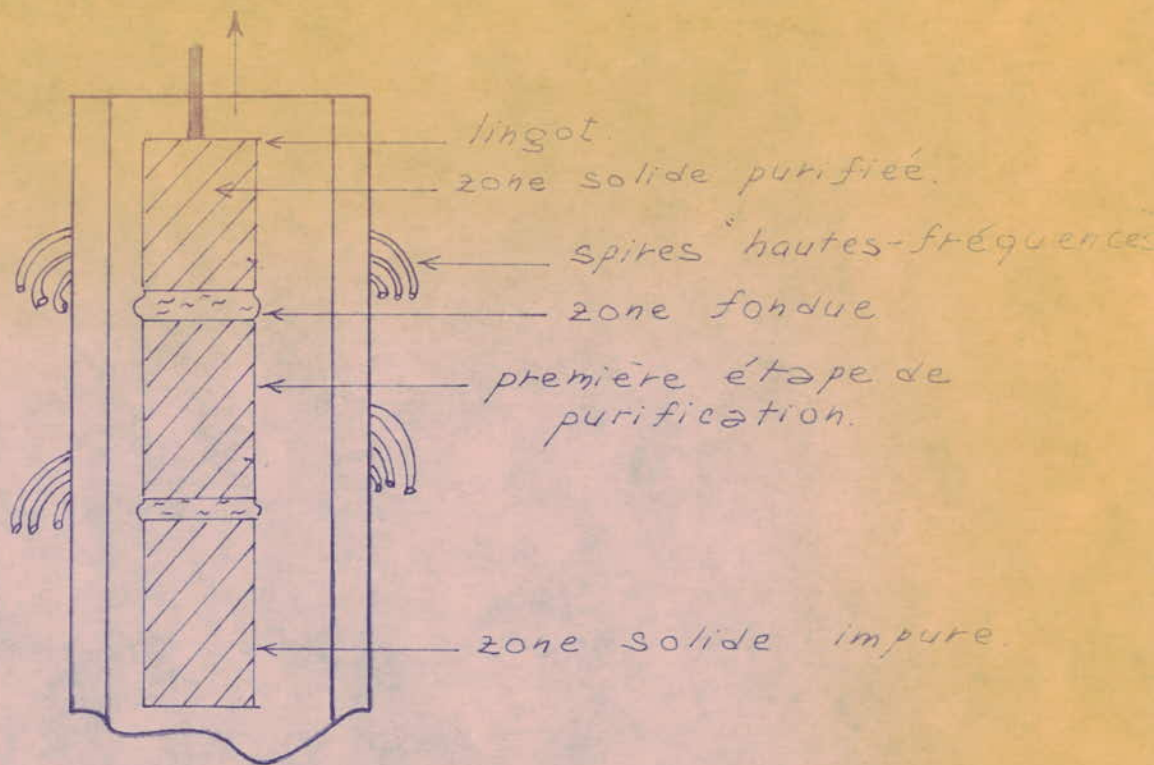 lingot.
zone solide purifieé.
spires hautes-fréquences
zone fondue
première étape de
purification.
zone solide impure.